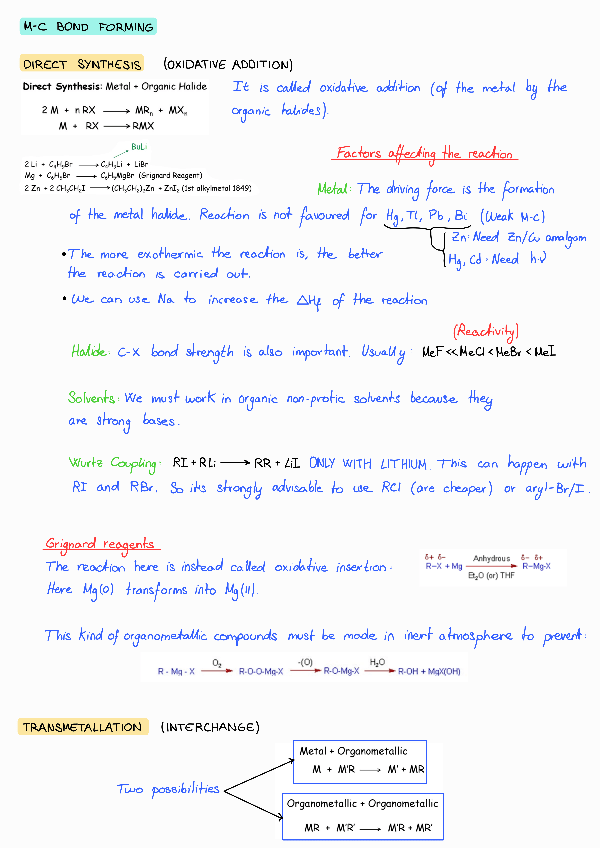 M-C BOND FORMING
DIRECT SYNTHESIS (OXIDATIVE ADDITION)
Direct Synthesis: Metal + Organic Halide
2 M + n RX ⟶ MRₙ + MXₙ
M + RX ⟶ RMX
It is called oxidative addition (of the metal by the
organic halides).
BuLi
2 Li + C₄H₉Br ⟶ C₄H₉Li + LiBr
Mg + C₆H₅Br ⟶ C₆H₅MgBr (Grignard Reagent)
2 Zn + 2 CH₃CH₂I ⟶ (CH₃CH₂)₂Zn + ZnI₂ (1st alkylmetal 1849)
Factors affecting the reaction
Metal: The driving force is the formation
of the metal halide. Reaction is not favoured for Hg, Tl, Pb, Bi (Weak M-C)
Zn: Need Zn/Cu amalgam
Hg, Cd: Need h·ν
• The more exothermic the reaction is, the better
the reaction is carried out.
• We can use Na to increase the ΔHf of the reaction
(Reactivity)
Halide: C-X bond strength is also important. Usually: MeF << MeCl < MeBr < MeI
Solvents: We must work in organic non-protic solvents because they
are strong bases.
Wurtz Coupling: RI + RLi ⟶ RR + LiI ONLY WITH LITHIUM. This can happen with
RI and RBr. So it's strongly advisable to use RCl (are cheaper) or aryl-Br/I.
Grignard reagents
The reaction here is instead called oxidative insertion.
Here Mg(0) transforms into Mg(II).
δ+ δ- Anhydrous δ- δ+
R–X + Mg ⟶ R–Mg-X
Et₂O (or) THF
This kind of organometallic compounds must be made in inert atmosphere to prevent:
O₂ -(O) H₂O
R - Mg - X ⟶ R-O-O-Mg-X ⟶ R-O-Mg-X ⟶ R-OH + MgX(OH)
TRANSMETALLATION (INTERCHANGE)
Metal + Organometallic
M + M'R ⟶ M' + MR
Two possibilities
Organometallic + Organometallic
MR + M'R' ⟶ M'R + MR'